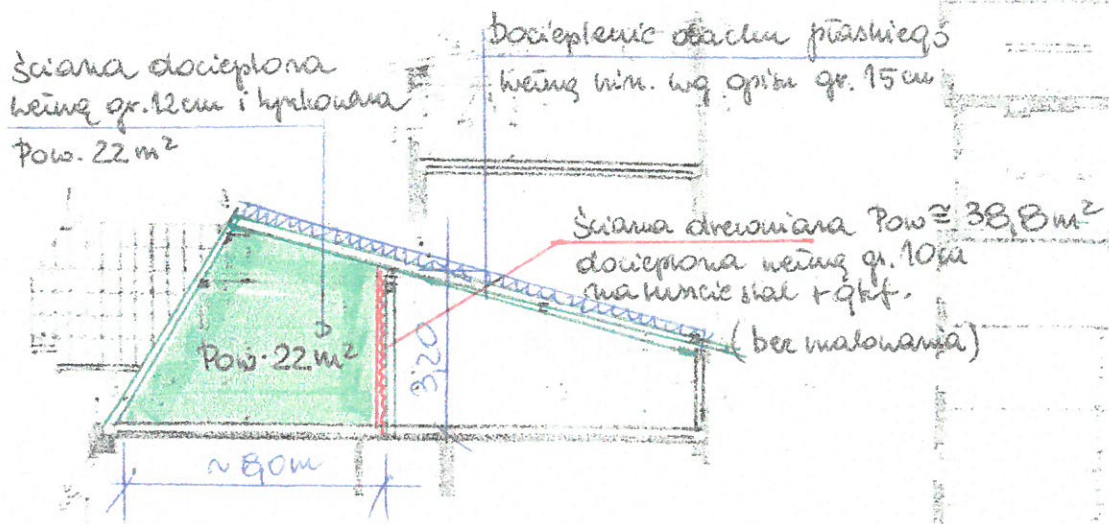 Ściana docieplona
wełną gr. 12cm i tynkowana
Pow. 22 m²
Docieplenie dachu płaskiego
wełną min. wg opisu gr. 15cm
Ściana drewniana Pow ≅ 38,8m²
docieplona wełną gr. 10cm
na ruszcie stal + gkf.
(bez malowania)
Pow. 22 m²
3,20
~ 8,0m